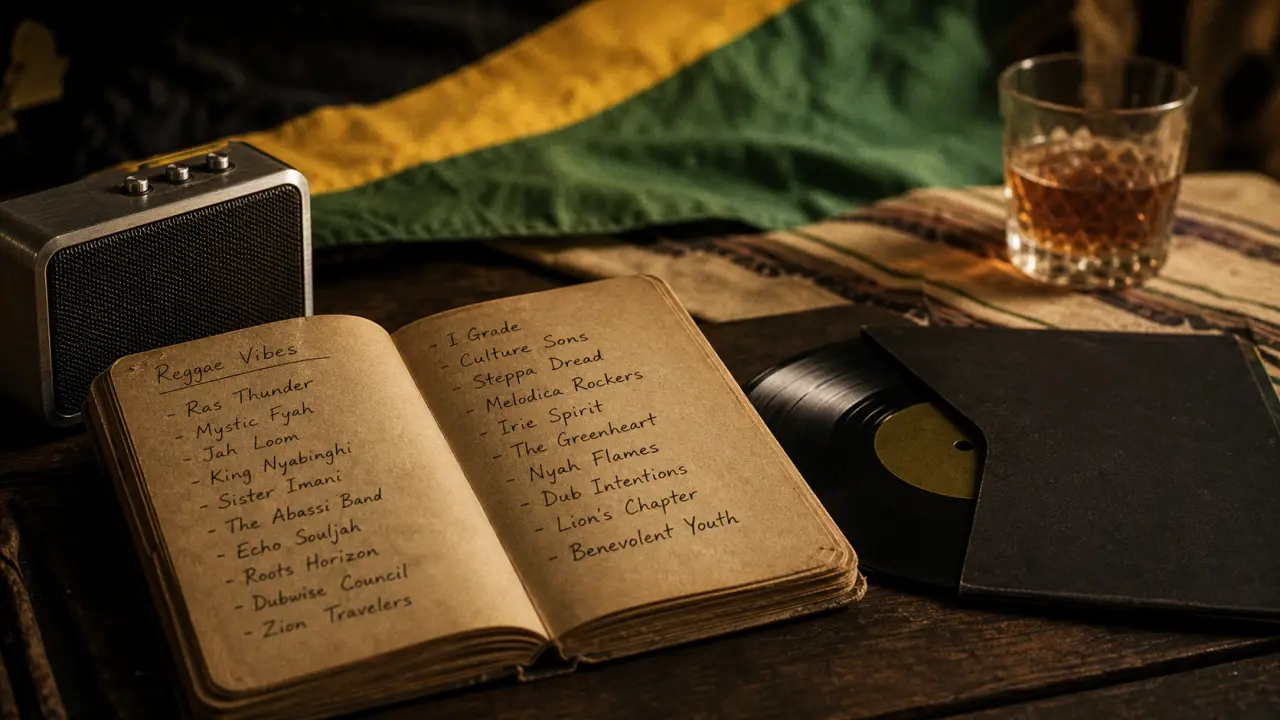 Reggae Vibes
- Ras Thunder
- Mystic Fyah
- Jah Loom
- King Nyabinghi
- Sister Imani
- The Abassi Band
- Echo Souljah
- Roots Horizon
- Dubwise Council
- Zion Travelers
- I Grade
- Culture Sons
- Steppa Dread
- Melodica Rockers
- Irie Spirit
- The Greenheart
- Nyah Flames
- Dub Intentions
- Lion's Chapter
- Benevolent Youth